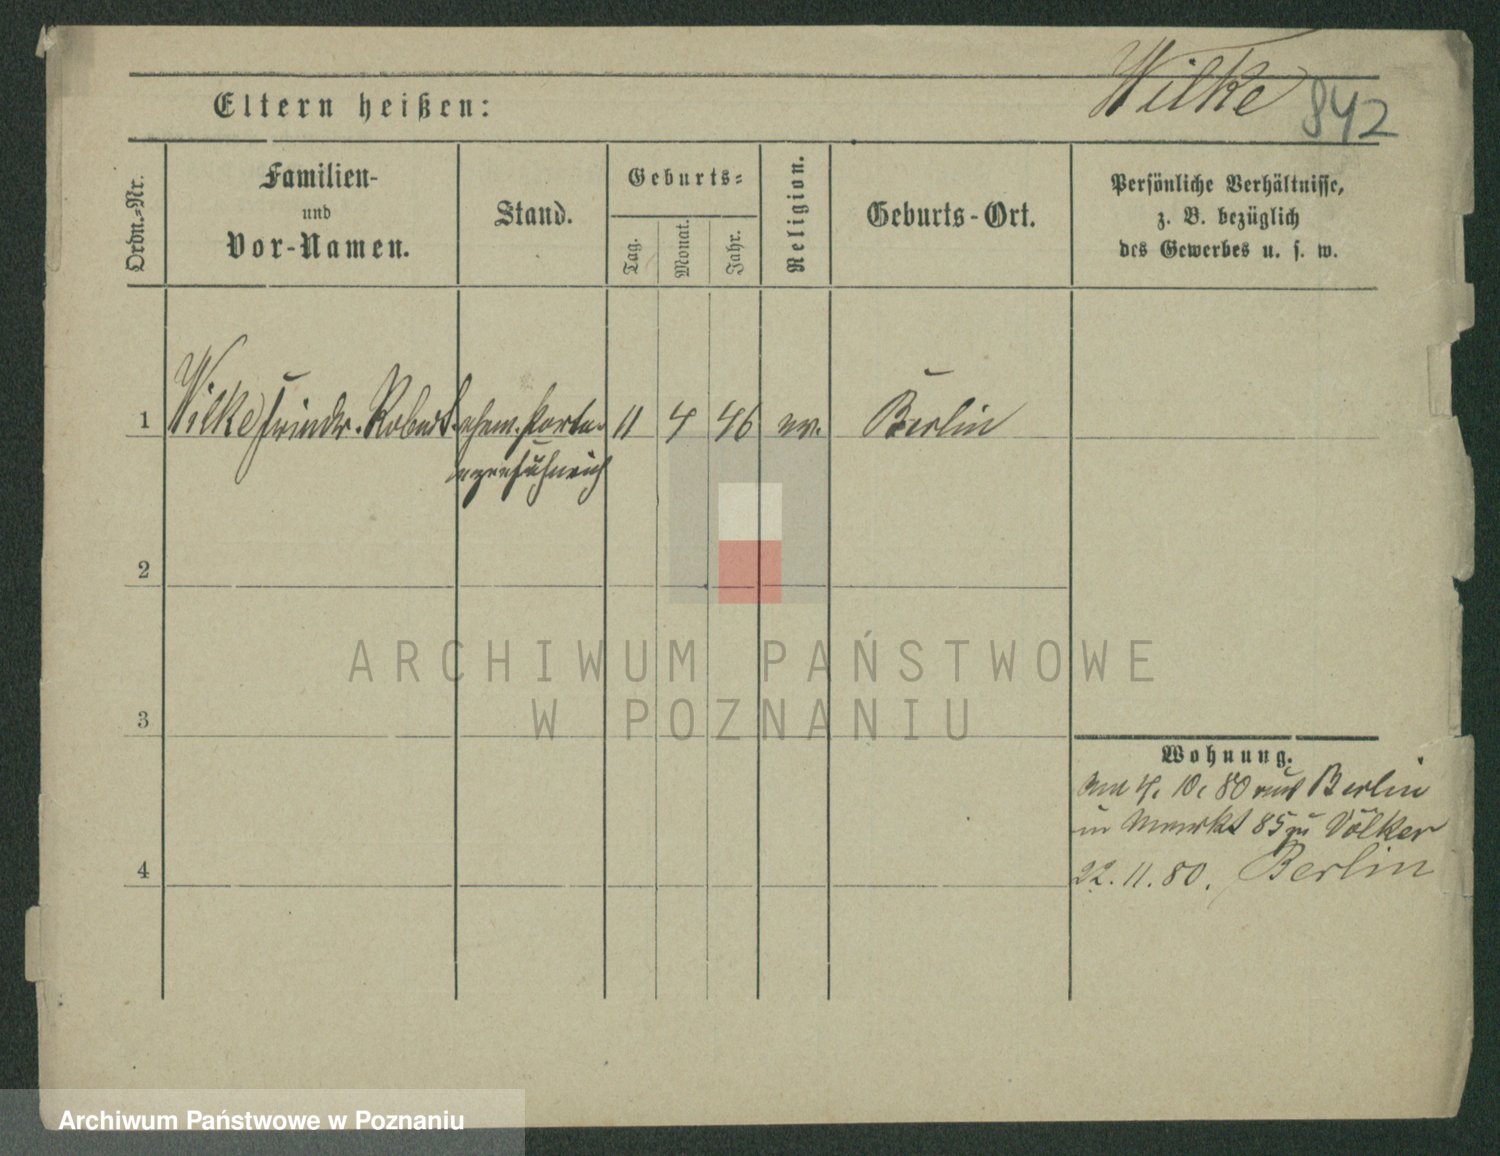 Wilke
842
Eltern heißen:
Ordn.-Nr.
Familien-
und
Vor-Namen.
Stand.
Geburts-
Tag.
Monat.
Jahr.
Religion.
Geburts-Ort.
Persönliche Verhältnisse,
z. B. bezüglich
des Gewerbes u. s. w.
1 Wilke Friedr. Robert ehem. Porte- 11 4 46 ev. Berlin
peefähnrich
2
ARCHIWUM PAŃSTWOWE
W POZNANIU
3
Wohnung.
am 4. 10. 80 aus Berlin
in Markt 85 zu Völker
4
22. 11. 80. Berlin
Archiwum Państwowe w Poznaniu